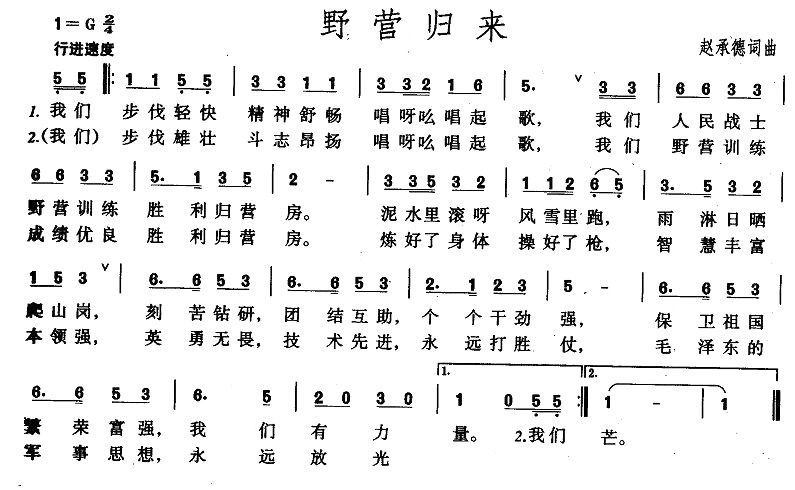 野营归来
1=G 2/4
行进速度
赵承德词曲
5 5 ‖: 1 1 5 5 | 3 3 1 1 | 3 3 2 1 6 | 5. ∨ 3 3 | 6 6 3 3 |
1. 我们 步伐轻快 精神舒畅 唱呀吆唱起 歌, 我们 人民战士
2.(我们) 步伐雄壮 斗志昂扬 唱呀吆唱起 歌, 我们 野营训练
6 6 3 3 | 5. 1 3 5 | 2 - | 3 3 5 3 2 | 1 1 2 6 5 | 3. 5 3 2 |
野营训练 胜利归营 房。 泥水里滚呀 风雪里跑, 雨淋日晒
成绩优良 胜利归营 房。 炼好了身体 操好了枪, 智慧丰富
1 5 3 ∨ | 6. 6 5 3 | 6. 6 5 3 | 2. 1 2 3 | 5 - | 6. 6 5 3 |
爬山岗, 刻苦钻研, 团结互助, 个个干劲 强, 保卫祖国
本领强, 英勇无畏, 技术先进, 永远打胜 仗, 毛泽东的
1. 2.
6. 6 5 3 | 6. 5 | 2 0 3 0 | 1 0 5 5 :‖ 1 - | 1 ‖
繁荣富强, 我们有力 量。 2.我们 芒。
军事思想, 永远放光